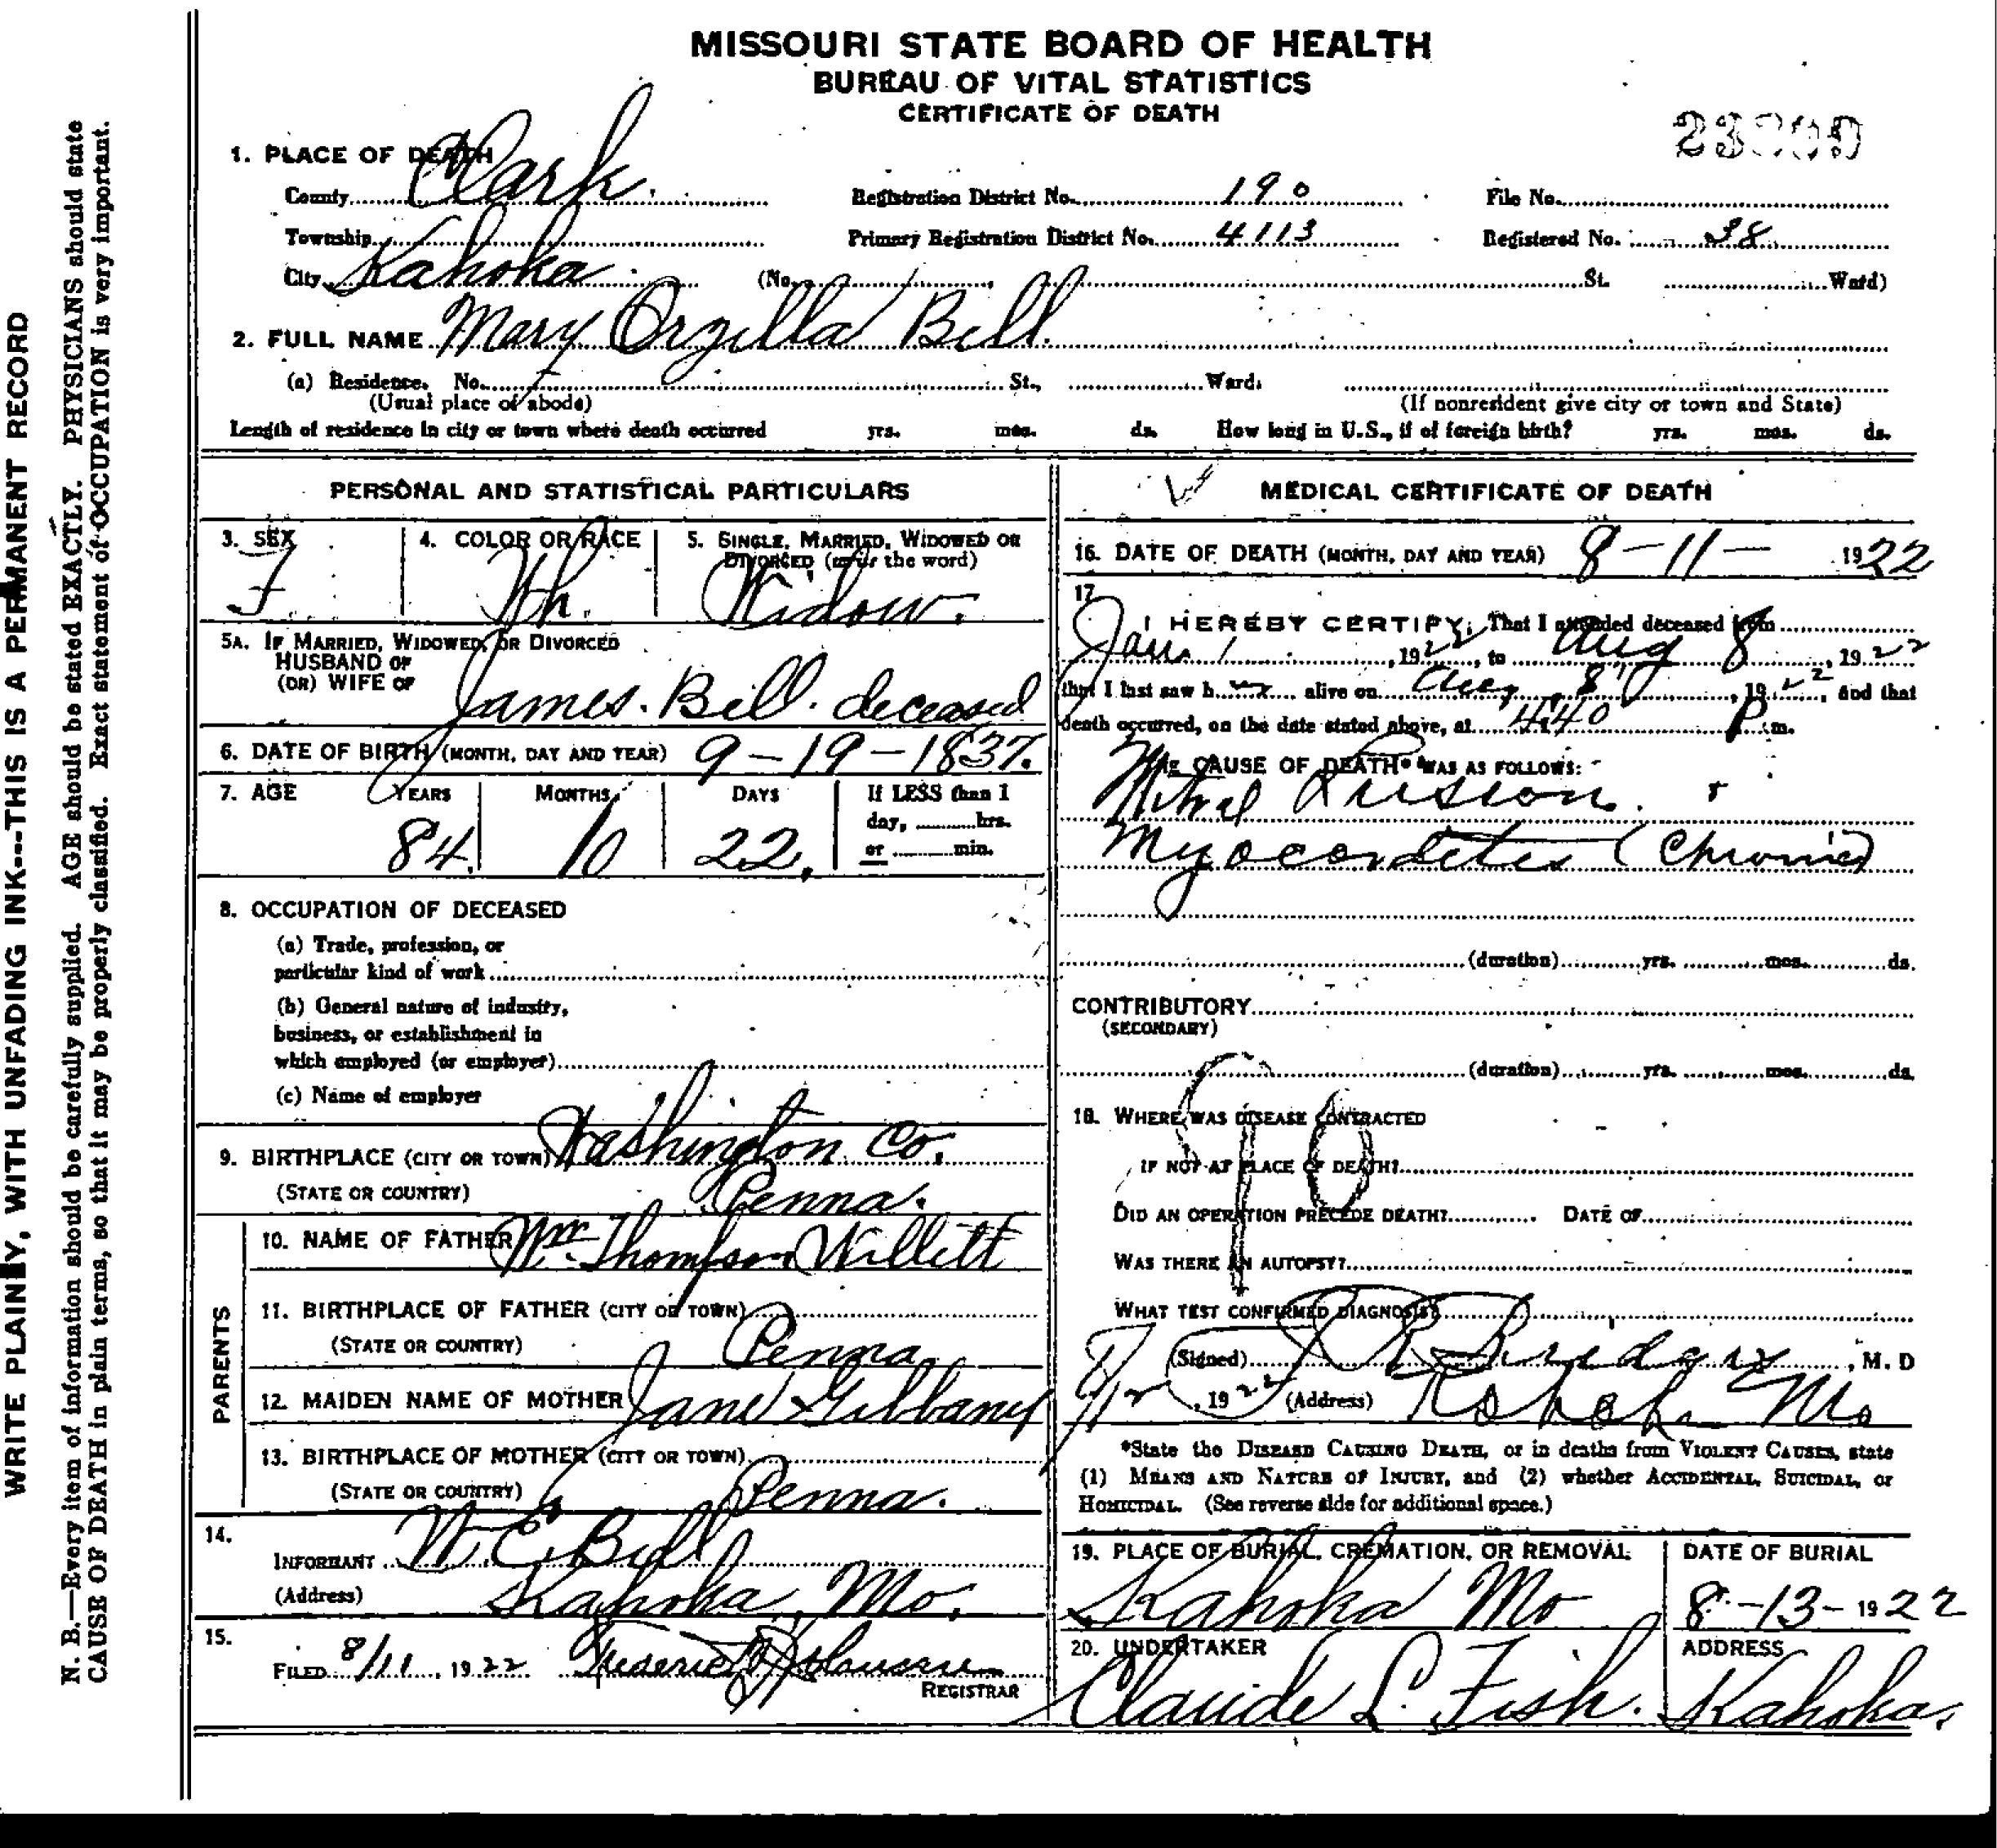 MISSOURI STATE BOARD OF HEALTH
BUREAU OF VITAL STATISTICS
CERTIFICATE OF DEATH
1. PLACE OF DEATH
County Clark. Registration District No. 190 File No.
Township Primary Registration District No. 4113 Registered No. 38
City Kahoka. (No. , St. Ward)
2. FULL NAME Mary Orzilla Bell.
(a) Residence. No. St., Ward.
(Usual place of abode) (If nonresident give city or town and State)
Length of residence in city or town where death occurred yrs. mos. ds. How long in U.S., if of foreign birth? yrs. mos. ds.
PERSONAL AND STATISTICAL PARTICULARS
3. SEX 4. COLOR OR RACE 5. SINGLE, MARRIED, WIDOWED OR
DIVORCED (write the word)
F. Wh. Widow.
5A. IF MARRIED, WIDOWED, OR DIVORCED
HUSBAND OF
(OR) WIFE OF James. Bell. deceased
6. DATE OF BIRTH (MONTH, DAY AND YEAR) 9-19-1837.
7. AGE YEARS MONTHS DAYS If LESS than 1
day, hrs.
or min.
84. 10 22.
8. OCCUPATION OF DECEASED
(a) Trade, profession, or
particular kind of work
(b) General nature of industry,
business, or establishment in
which employed (or employer)
(c) Name of employer
9. BIRTHPLACE (CITY OR TOWN) Washington Co.
(STATE OR COUNTRY) Penna.
PARENTS
10. NAME OF FATHER Wm. Thompson Willett
11. BIRTHPLACE OF FATHER (CITY OR TOWN)
(STATE OR COUNTRY) Penna.
12. MAIDEN NAME OF MOTHER Jane Gibbany
13. BIRTHPLACE OF MOTHER (CITY OR TOWN)
(STATE OR COUNTRY) Penna.
14.
INFORMANT W. E. Bell
(Address) Kahoka, Mo.
15.
FILED 8/11, 1922
REGISTRAR
MEDICAL CERTIFICATE OF DEATH
16. DATE OF DEATH (MONTH, DAY AND YEAR) 8-11- 1922
17.
I HEREBY CERTIFY, That I attended deceased from
Jan. 1, 1922, to Aug 8, 1922
that I last saw her alive on Aug. 8, 1922, and that
death occurred, on the date stated above, at 4:40 P.m.
THE CAUSE OF DEATH* WAS AS FOLLOWS:
Mitral
Myocarditis (Chronic)
(duration) yrs. mos. ds.
CONTRIBUTORY
(SECONDARY)
(duration) yrs. mos. ds.
18. WHERE WAS DISEASE CONTRACTED
IF NOT AT PLACE OF DEATH?
90
DID AN OPERATION PRECEDE DEATH? DATE OF
WAS THERE AN AUTOPSY?
WHAT TEST CONFIRMED DIAGNOSIS?
(Signed) R Bridges, M. D
, 1922 (Address) Kahoka Mo
*State the DISEASE CAUSING DEATH, or in deaths from VIOLENT CAUSES, state
(1) MEANS AND NATURE OF INJURY, and (2) whether ACCIDENTAL, SUICIDAL, or
HOMICIDAL. (See reverse side for additional space.)
19. PLACE OF BURIAL, CREMATION, OR REMOVAL DATE OF BURIAL
Kahoka Mo 8-13-1922
20. UNDERTAKER ADDRESS
Claude L. Fish. Kahoka.
WRITE PLAINLY, WITH UNFADING INK---THIS IS A PERMANENT RECORD
N. B.—Every item of information should be carefully supplied. AGE should be stated EXACTLY. PHYSICIANS should state
CAUSE OF DEATH in plain terms, so that it may be properly classified. Exact statement of OCCUPATION is very important.